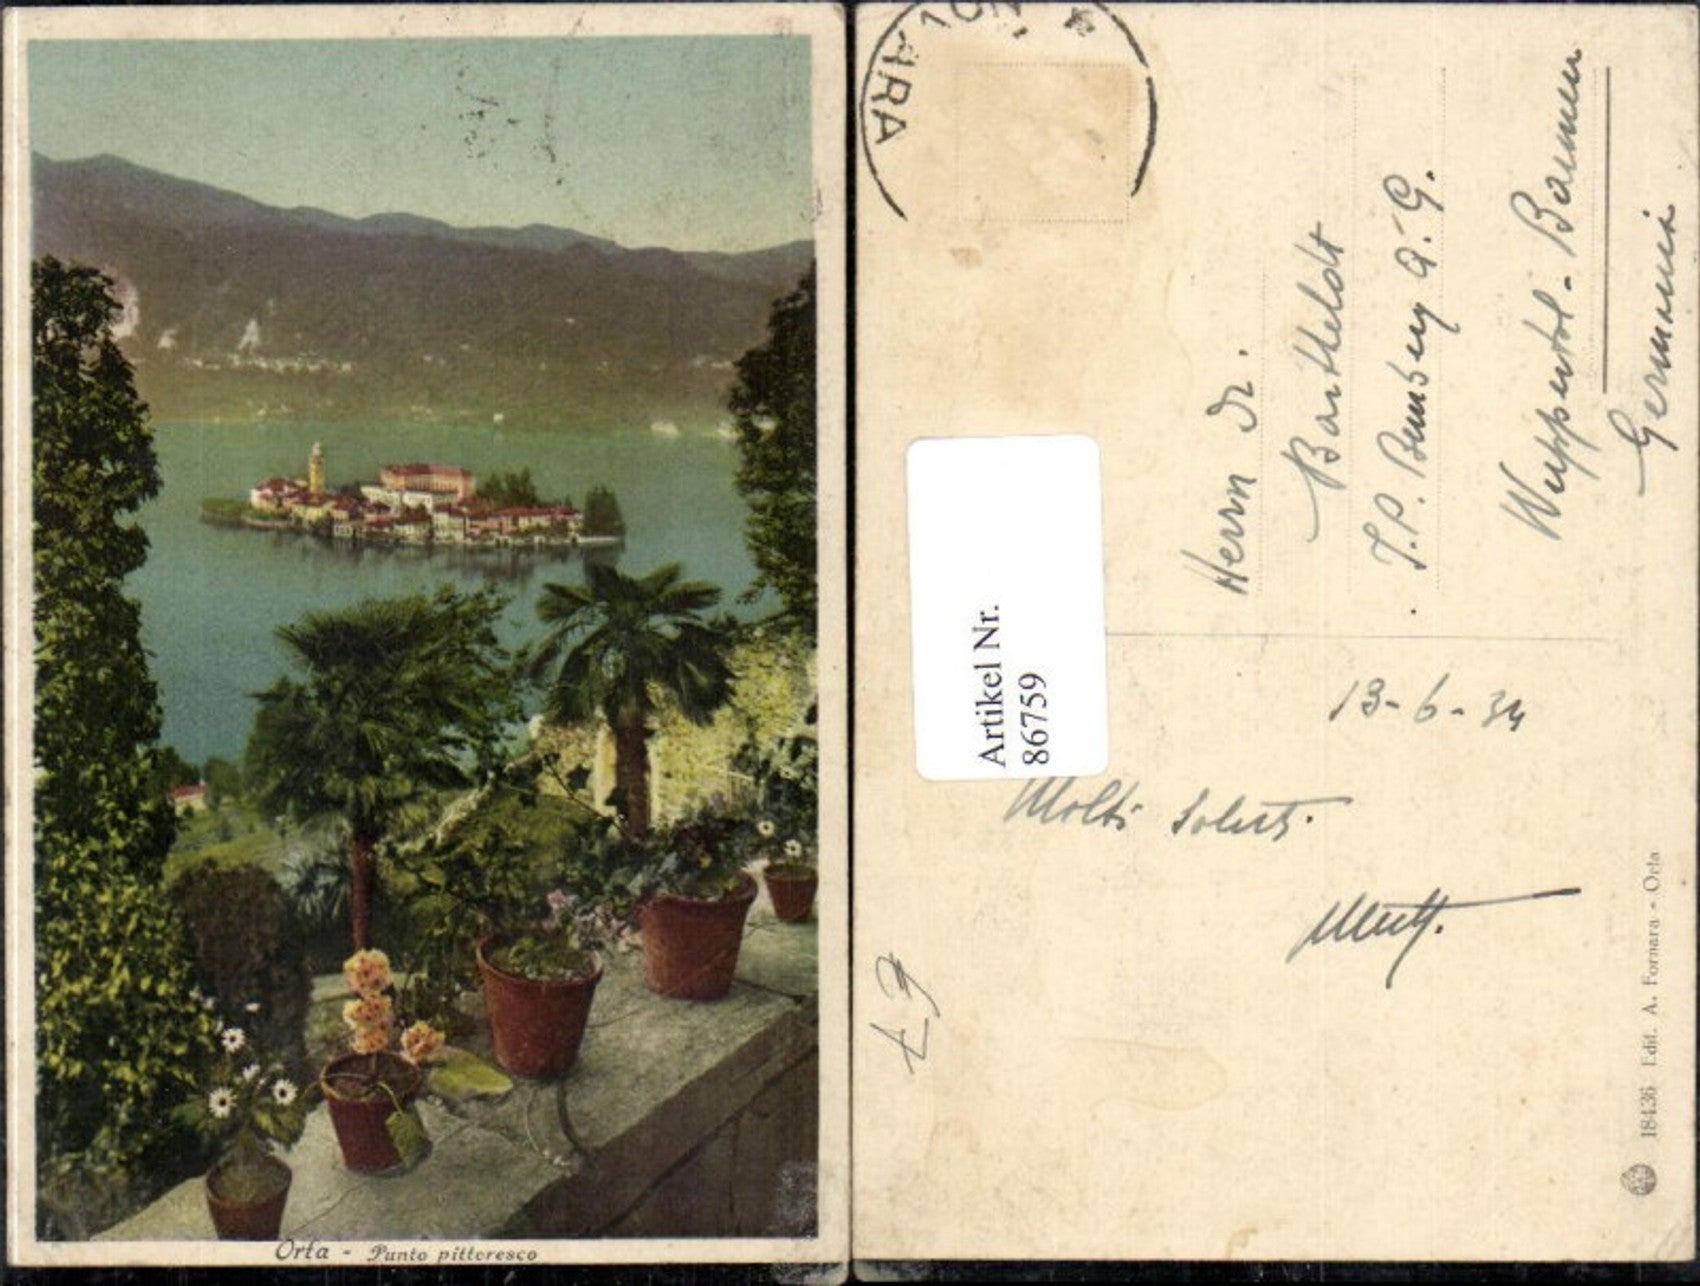 Orta - Punto pittoresco
NOVARA
Artikel Nr.
86759
Herrn Dr.
Bartheldt
J.P. Bemberg A.G.
Wuppertal-Barmen
Germania
13-6-34
Molti saluti.
18436 Edit. A. Fornara - Orta